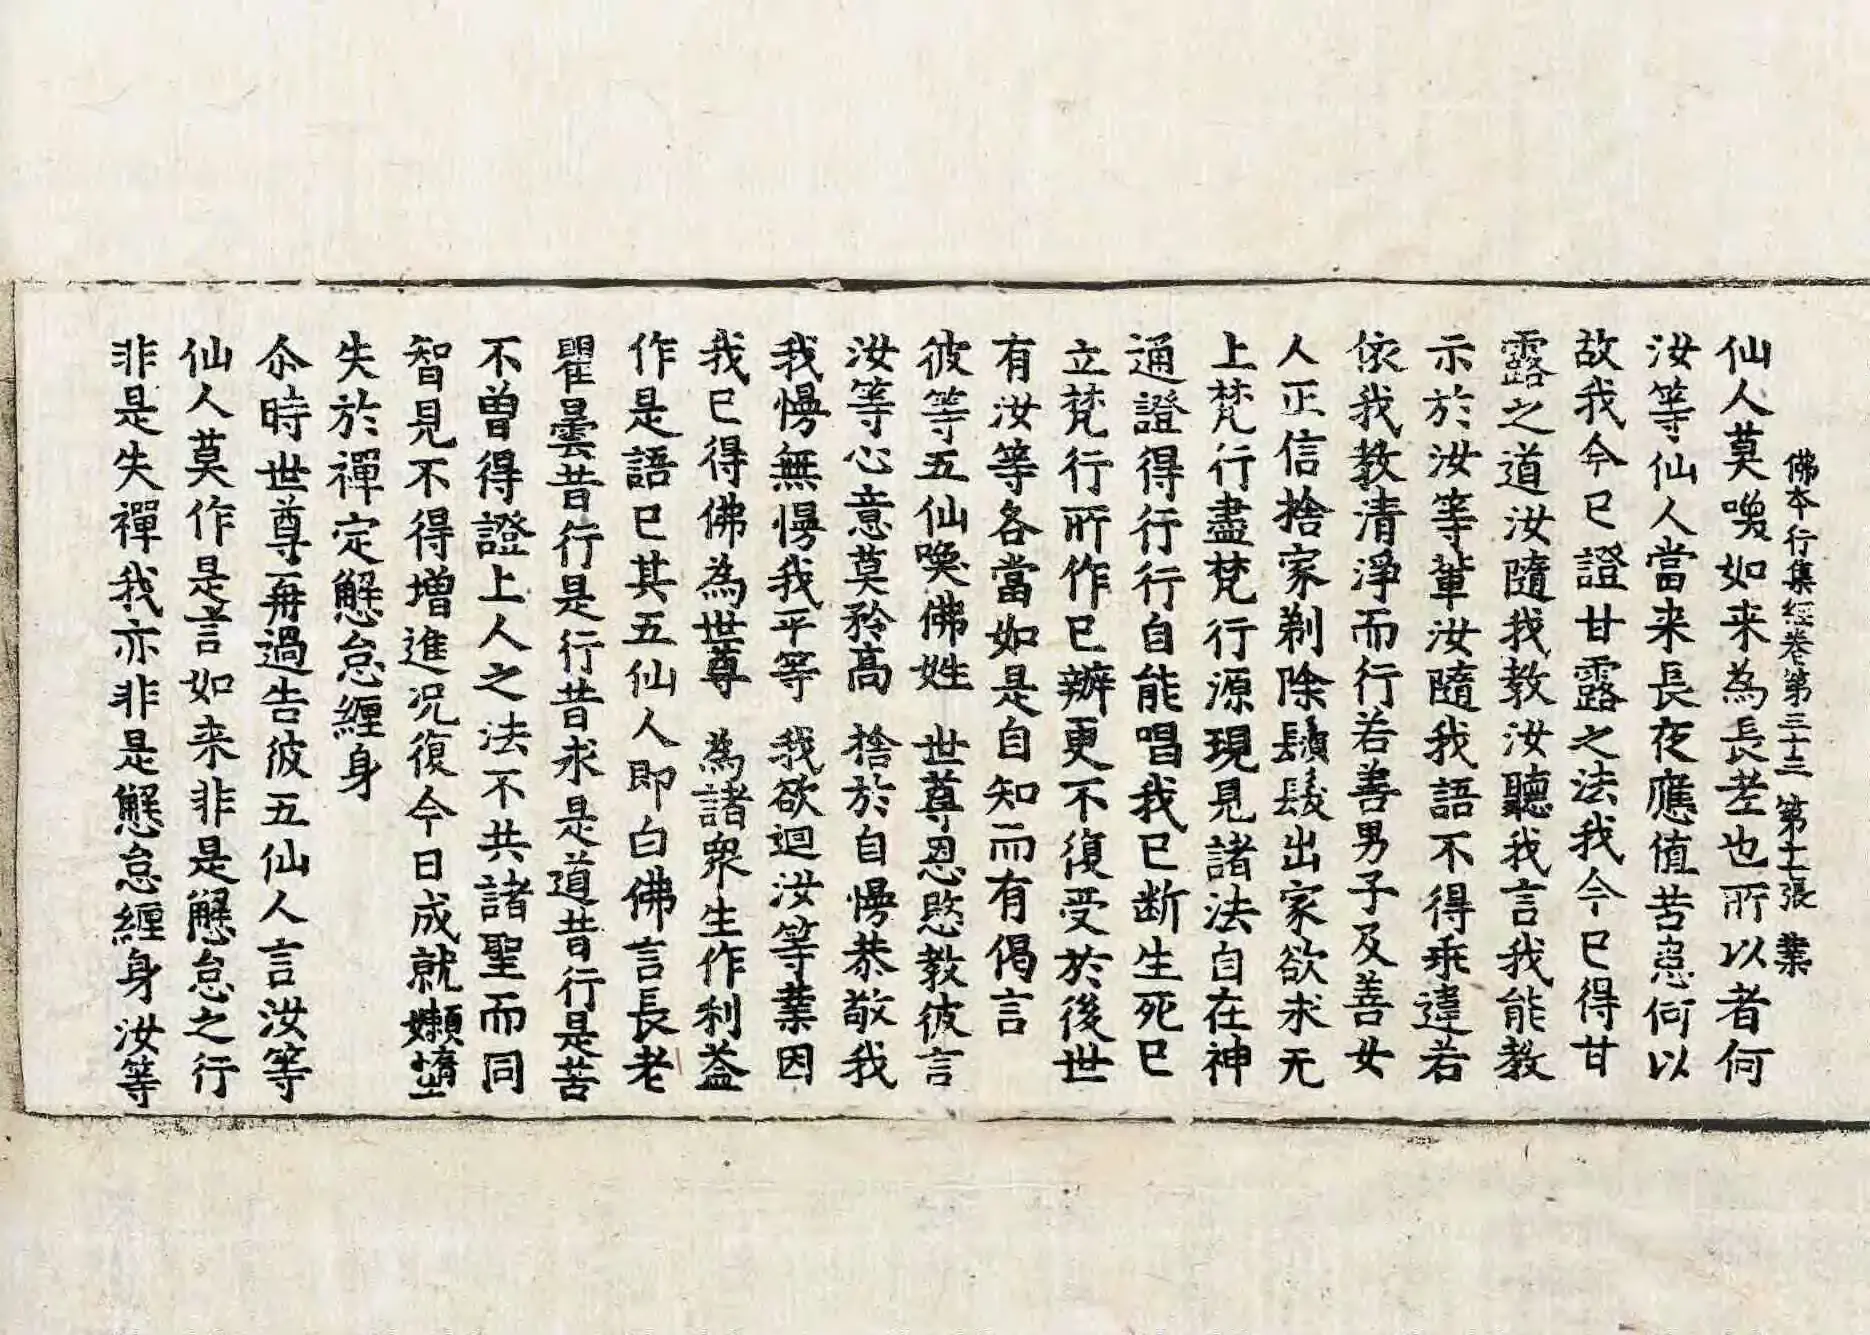 佛本行集經卷第三十三 第十七張 業
仙人莫喚如来為長老也所以者何
汝等仙人當来長夜應值苦患何以
故我今已證甘露之法我今已得甘
露之道汝隨我教汝聽我言我能教
示於汝等輩汝隨我語不得乖違若
依我教清淨而行若善男子及善女
人正信捨家剃除鬚髮出家欲求无
上梵行盡梵行源現見諸法自在神
通證得行行自能唱我已断生死已
立梵行所作已辦更不復受於後世
有汝等各當如是自知而有偈言
彼等五仙喚佛姓 世尊恩愍教彼言
汝等心意莫矜高 捨於自慢恭敬我
我慢無慢我平等 我欲迴汝等業因
我已得佛為世尊 為諸衆生作利益
作是語已其五仙人即白佛言長老
瞿曇昔行是行昔求是道昔行是苦
不曾得證上人之法不共諸聖而同
智見不得增進況復今日成就嬾墮
失於禪定懈怠纏身
尒時世尊再過告彼五仙人言汝等
仙人莫作是言如来非是懈怠之行
非是失禪我亦非是懈怠纏身汝等